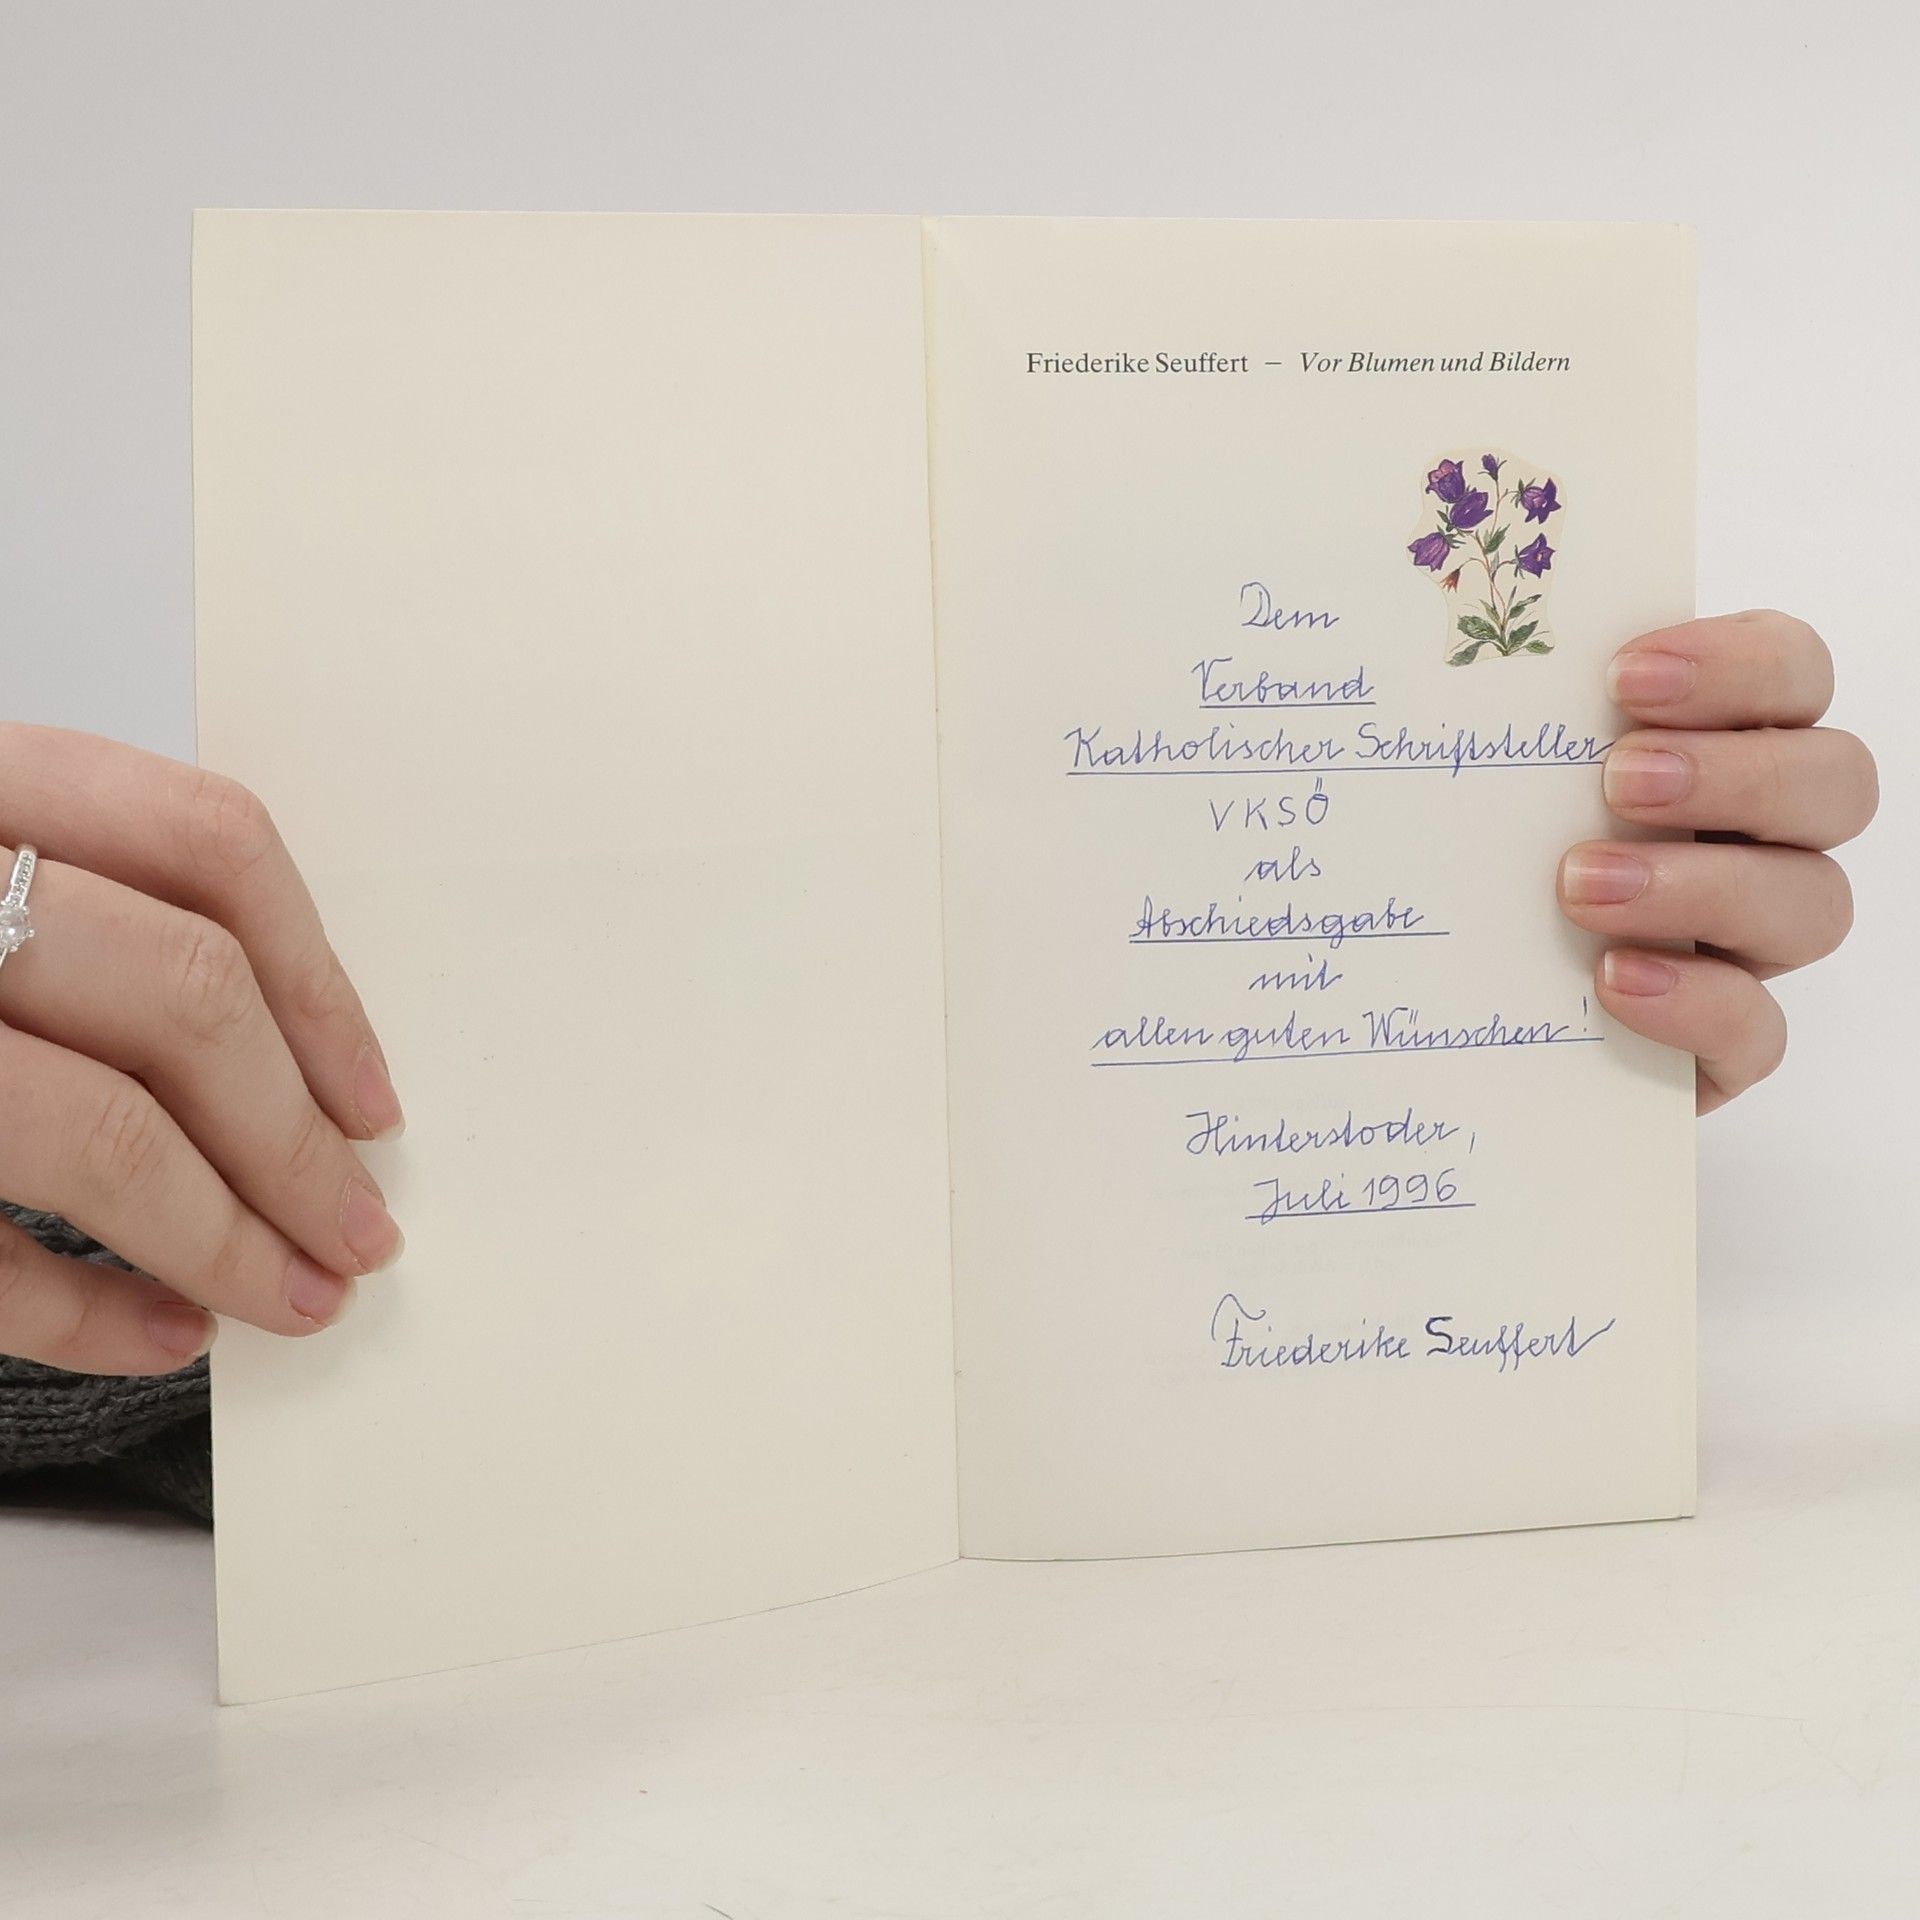 Friederike Seuffert – Vor Blumen und Bildern
Dem
Verband
Katholischer Schriftsteller
VKSÖ
als
Abschiedsgabe
mit
allen guten Wünschen!
Hinterstoder,
Juli 1996
Friederike Seuffert